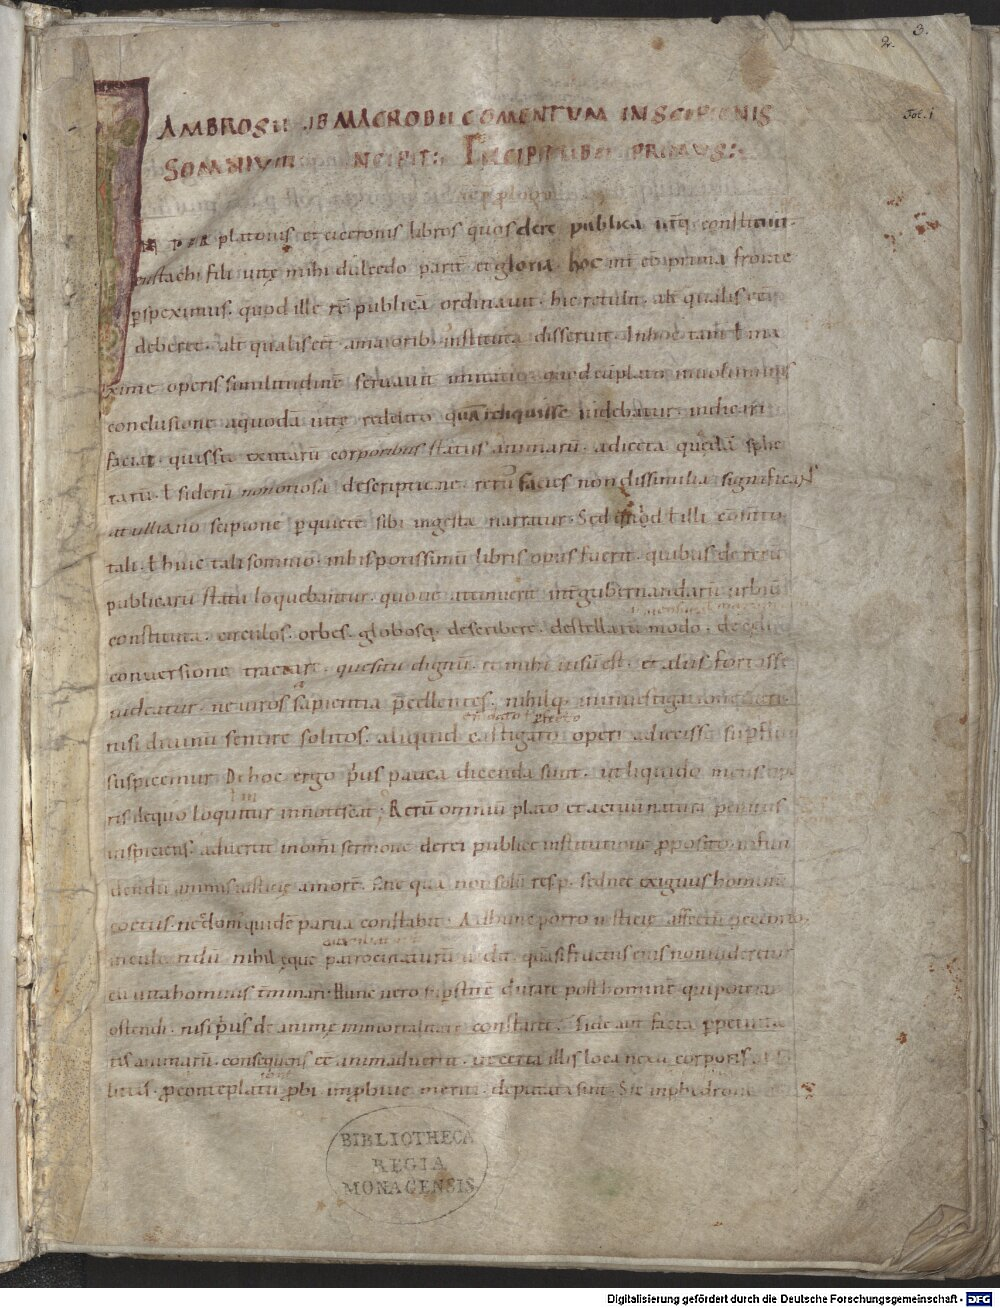 2. 3.
Fol. 1
AMBROSII MACROBII COMENTUM IN SCIPIONIS
SOMNIUM INCIPIT: INCIPIT LIBER PRIMUS:
platonis et ciceronis libros quos de re publica uterq; constituit.
eustachi fili uitę mihi dulcedo parit et gloria. hoc int eē prima fronte
pspeximus. quod ille rē publicā ordinauit. hic retulit. alt qualis eēt
deberet. alt qualis eēt amaiorib; instituta disseruit. In hoc tam ł ma
xime operis similitudinē seruauit imitatio. quod cū plato in uoluminis
conclusione aquodā uitę reddito quā reliquisse uidebatur. indicari
faciat. qui sit exutarū corporibus status animarū. adiecta quedā sphe
rarū. ł siderū non otiosa descriptione. rerū facies non dissimilia significans
a tulliano scipione p quietē sibi ingesta narratur. Sed quod ł illi com̄to
tali. ł huic tali somnio. in his potissimū libris opus fuerit. quibus de rerū
publicarū statu loquebantur. quoue attinuerit int gubernandarū urbiū
constituta. circulos. orbes. globosq; describere. de stellarū modo. de cęli
conuersione tractare. quesitu dignū. et mihi uisū est. et aliis fortasse
uideatur. ne uiros sapientia pcellentes. nihilq; in inuestigatione ueri.
nisi diuinū sentire solitos. aliquid castigato operi adiecisse supfluū
suspicemur. De hoc ergo prius pauca dicenda sunt. ut liquido mens op
ris de quo loquitur innotescat; Rerū omniū plato et actuū natura penitus
inspiciens. aduertit in omī sermone de rei publice institutione pposito. infun
dendū animis iusticię amorē. sine qua non solū res p. sed nec exiguus hominū
coetus. nec domꝰ quidē parua constabit. Ad hunc porro iusticię affectū pectorib;
inculcandū nihil ęque patrocinaturū uidit. quāsi fructus eius non uideretur
cū uita hominis t̄minari. Hunc uero supstitē durare post hominē. qui poterat
ostendi. nisi prius de animę immortalitate constaret. Fide aut facta ppetuita
tis animarū. consequens eē animaduertit. ut certa illis loca nexu corporis
liberatis. p contēplatu pbi improbiue meriti. deputata sint. Sic in phedrone
BIBLIOTHECA
REGIA
MONACENSIS
Digitalisierung gefördert durch die Deutsche Forschungsgemeinschaft - DFG